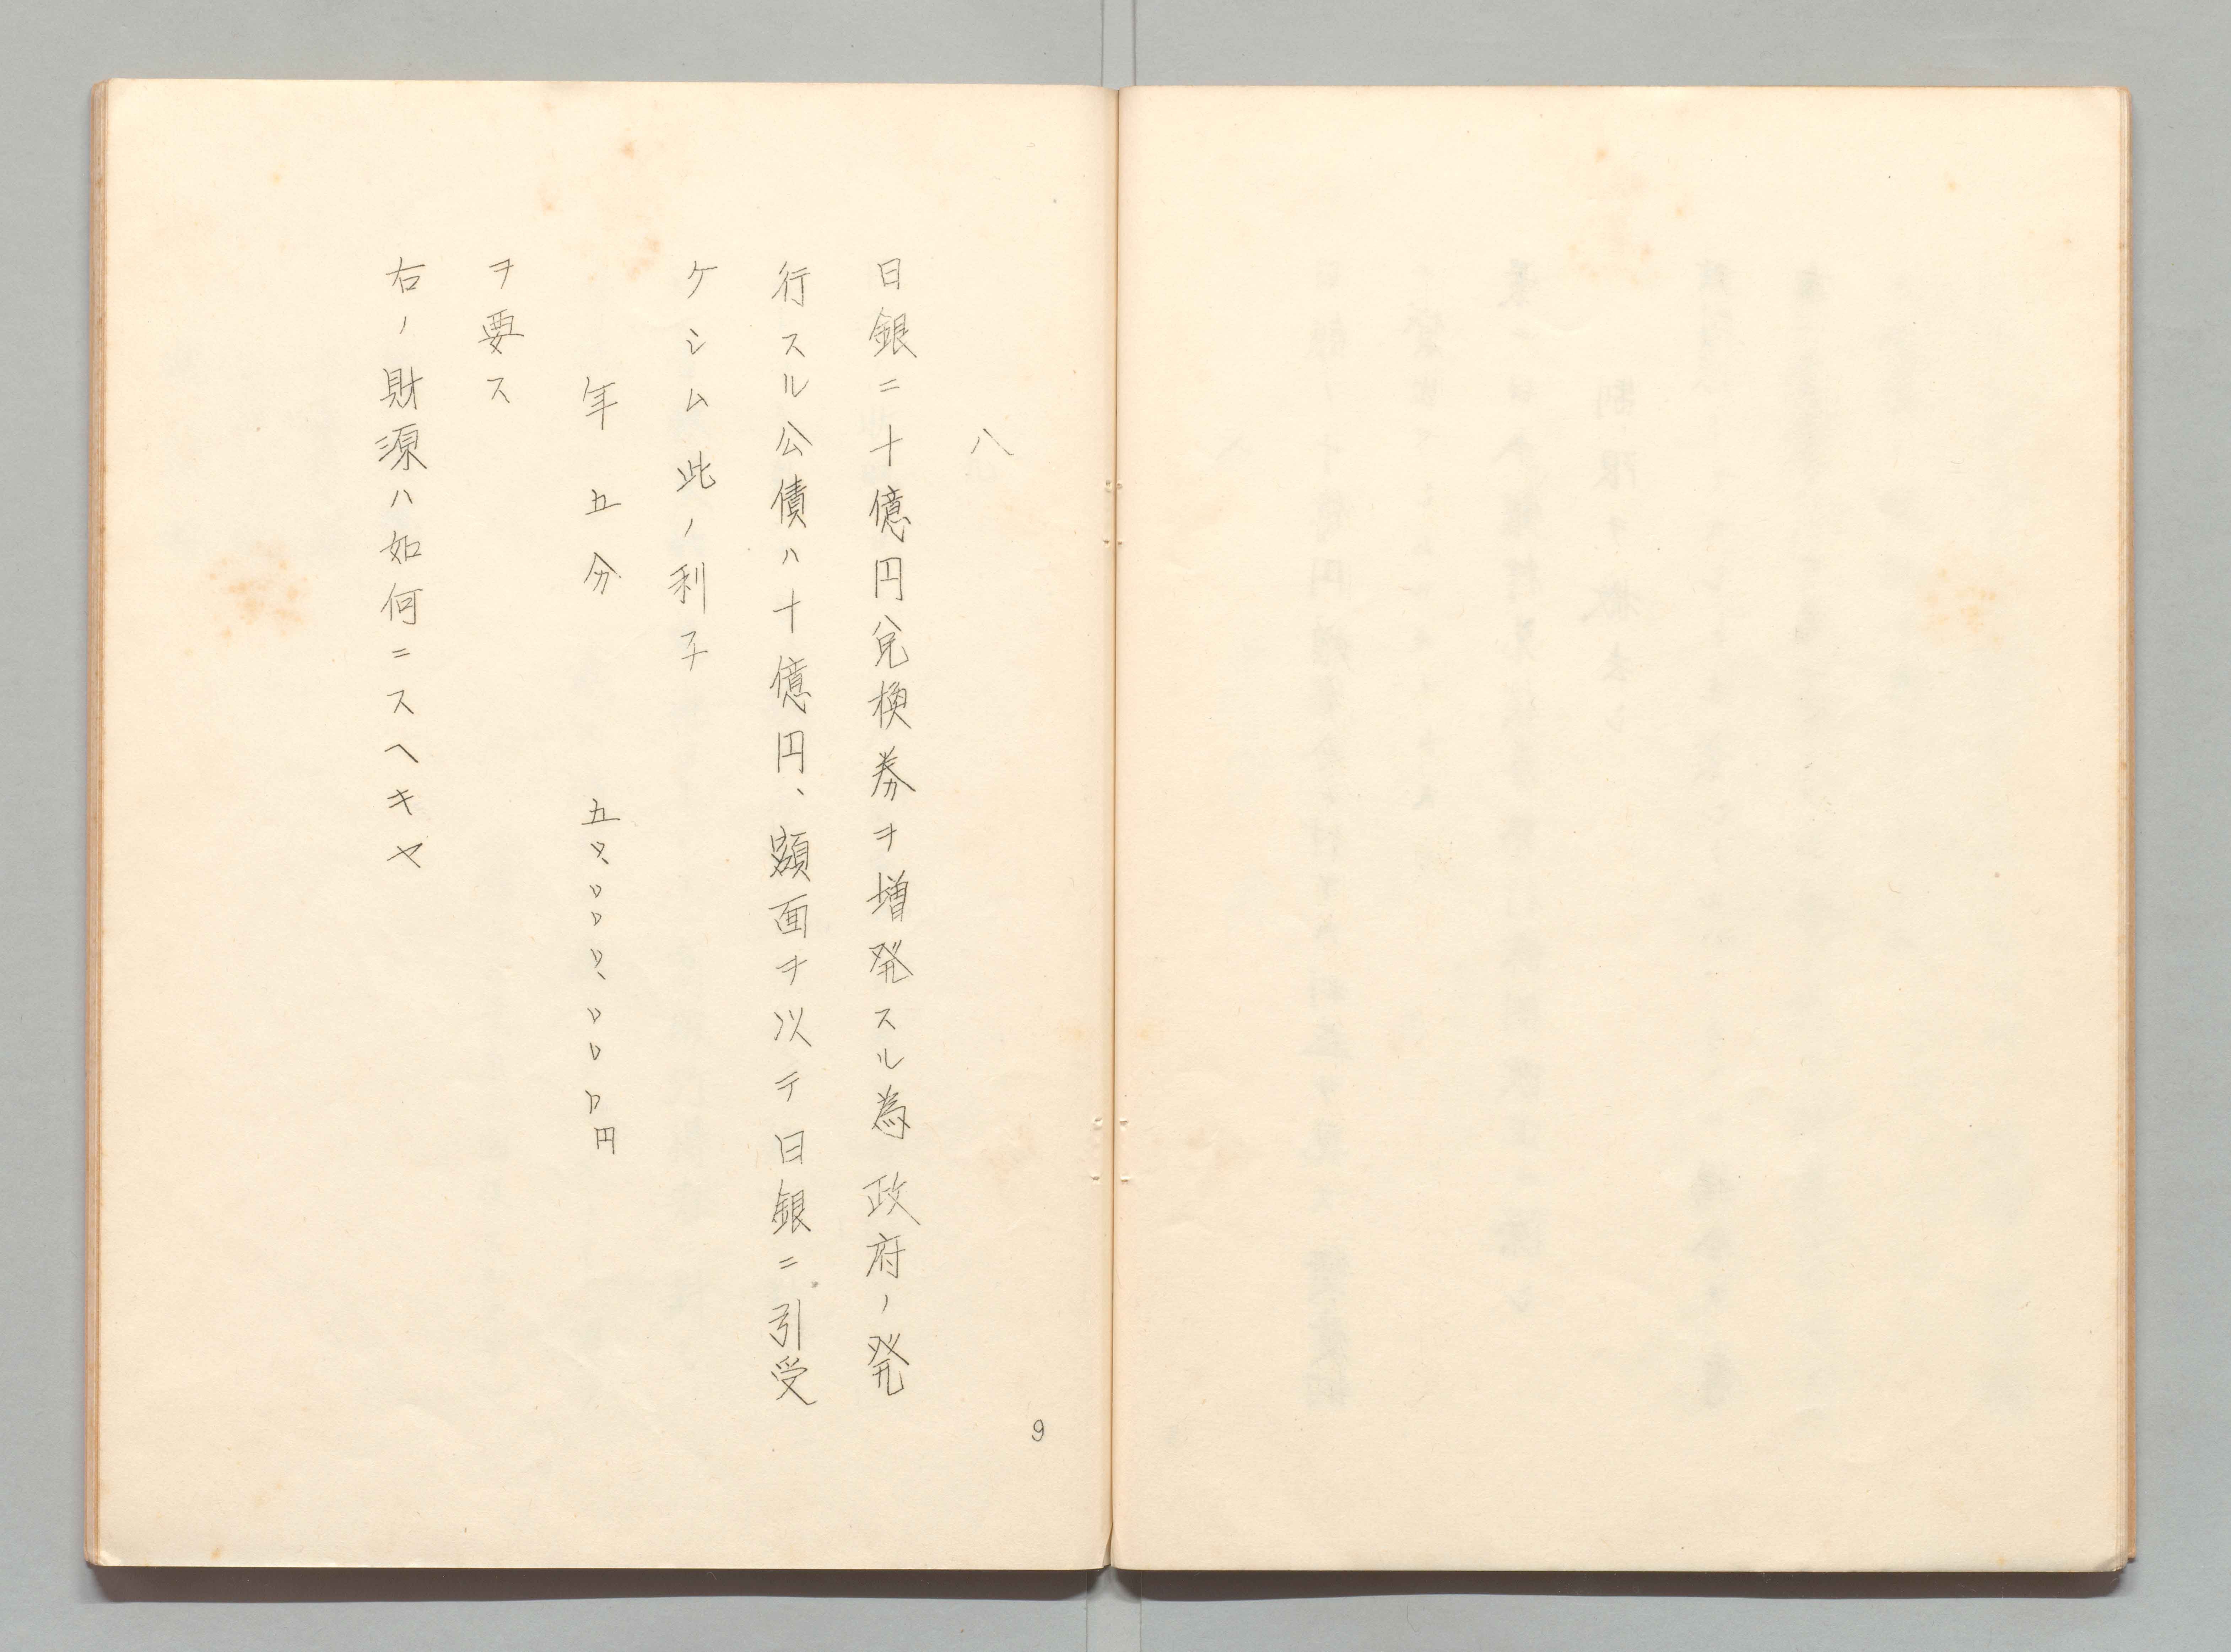 八
日銀ニ十億円兌換券ヲ増発スル為政府ノ発
行スル公債ハ十億円、額面ヲ以テ日銀ニ引受
ケシム此ノ利子
年五分 五〇、〇〇〇、〇〇〇円
ヲ要ス
右ノ財源ハ如何ニスヘキヤ
9